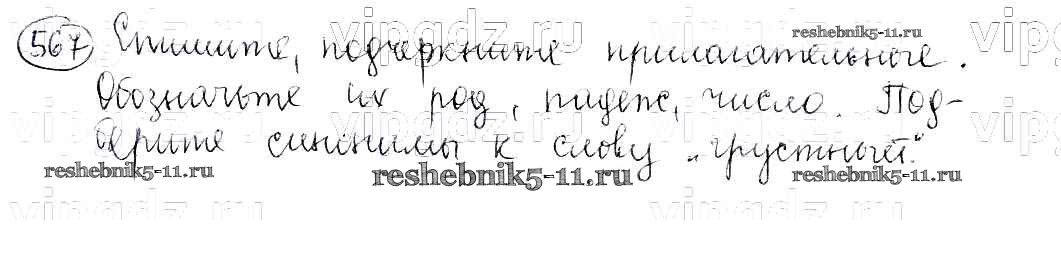 567 Спишите, подчеркните прилагательные.
Обозначьте их род, падеж, число. Под-
берите синонимы к слову „грустный".
reshebnik5-11.ru
reshebnik5-11.ru reshebnik5-11.ru reshebnik5-11.ru
vipgdz.ru